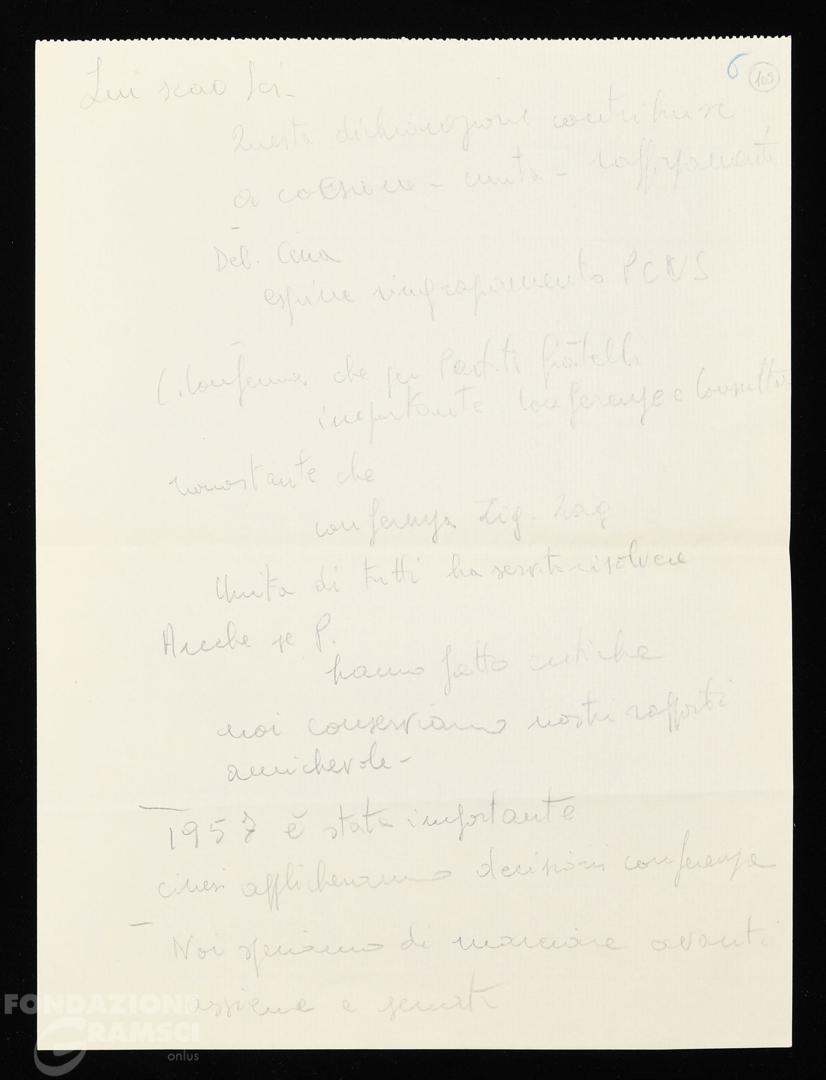 6 109
Liu sciao sci -
Questa dichiarazione contribuisce
a coesione - unità - rafforzamento
-
Del. Cina
esprime ringraziamento PCUS
-
C. Conferma che per Partiti fratelli
importante Conferenze e Consultaz
nonostante che
conferenza Zig-Zag
Unità di tutti ha servito risolvere
Anche se P.
hanno fatto critiche
noi conserviamo nostri rapporti
amichevole -
-
1957 è stata importante
cinesi applicheranno decisioni conferenza
-
Noi speriamo di marciare avanti
assieme e
FONDAZIONE
GRAMSCI
onlus